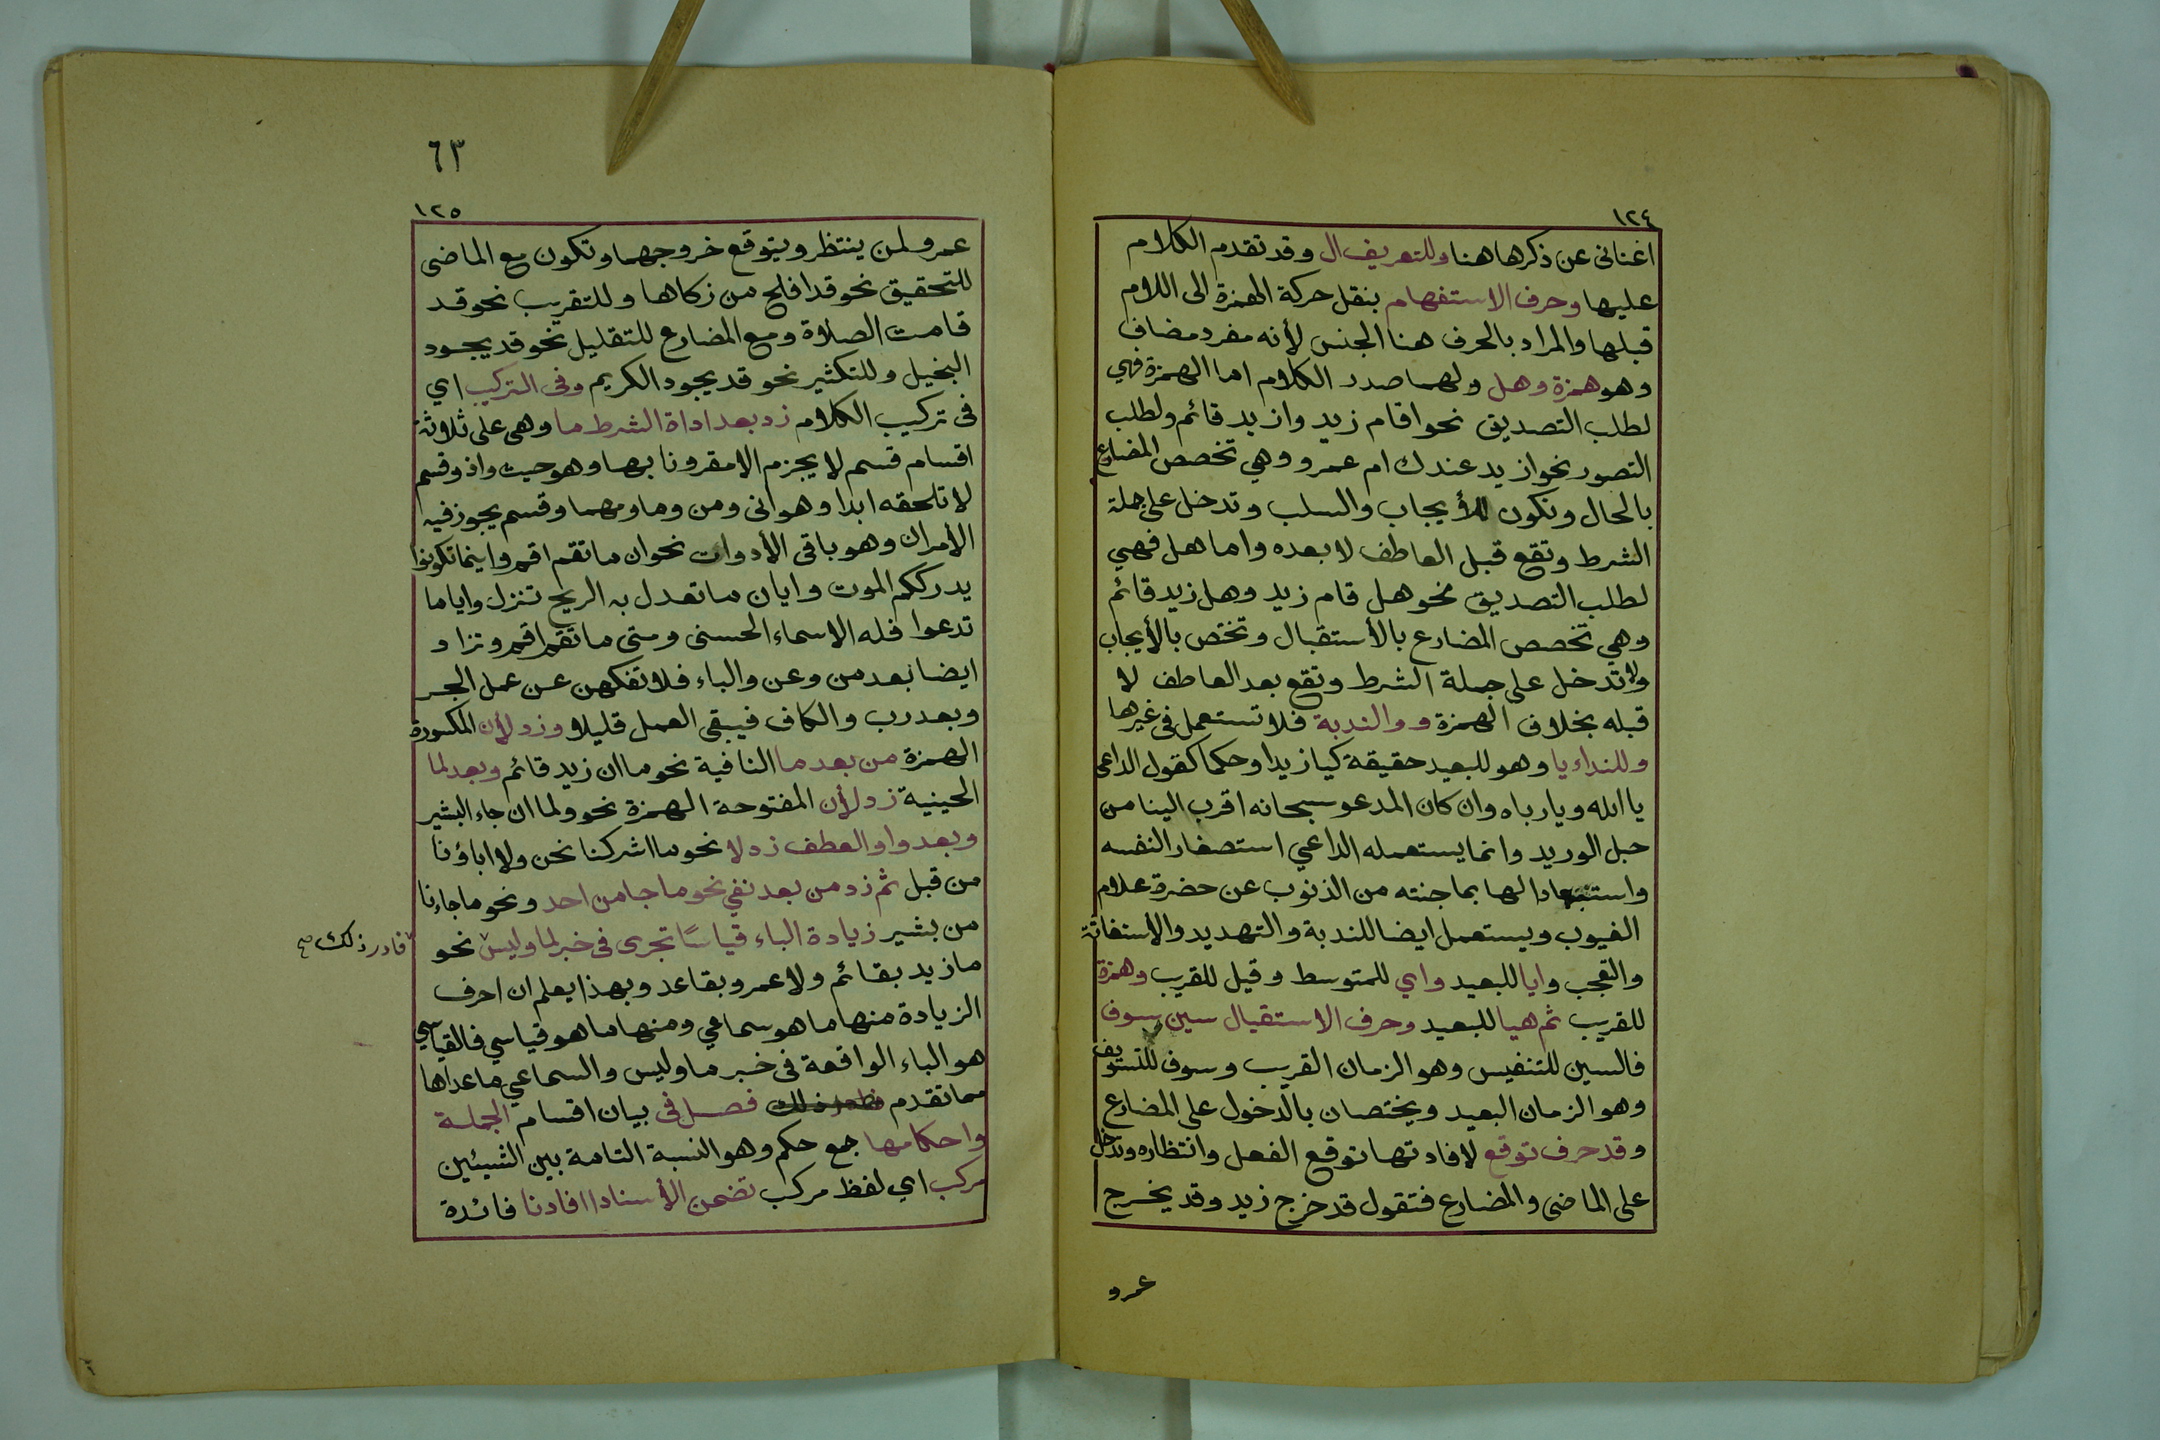 ١٢٤
اغنانى عن ذكرها هنا وللتعريف ال وقد تقدم الكلام
عليها وحرف الاستفهام بنقل حركة الهمزة الى اللام
قبلها والمراد بالحرف هنا الجنس لأنه مفرد مضاف
وهو همزة وهل ولهما صدر الكلام اما الهمزة فهي
لطلب التصديق نحو اقام زيد وازيد قائم ولطلب
التصور نحو ازيد عندك ام عمرو وهي تخصص المضارع
بالحال وتكون للأيجاب والسلب وتدخل على جملة
الشرط وتقع قبل العاطف لا بعده واما هل فهي
لطلب التصديق نحو هل قام زيد وهل زيد قائم
وهي تخصص المضارع بالأستقبال وتختص بالأيجاب
ولا تدخل على جملة الشرط وتقع بعد العاطف لا
قبله بخلاف الهمزة و والندبة فلا تستعمل في غيرها
وللنداء يا وهو للبعيد حقيقة كيا زيد او حكما كقول الداعى
يا الله ويا رباه وان كان المدعو سبحانه اقرب الينا من
حبل الوريد وانما يستعمله الداعي استصغارا لنفسه
واستبعادا لها بما جنته من الذنوب عن حضرة علام
الغيوب ويستعمل ايضا للندبة والتهديد والاستغاثة
والتعجب وايا للبعيد واي للمتوسط وقيل للقريب وهمزة
للقريب ثم هيا للبعيد وحرف الاستقبال سين سوف
فالسين للتنفيس وهو الزمان القريب وسوف للتسويف
وهو الزمان البعيد ويختصان بالدخول على المضارع
وقد حرف توقع لافادتها توقع الفعل وانتظاره وتدخل
على الماضى والمضارع فتقول قد خرج زيد وقد يخرج
عمرو
٦٣
١٢٥
عمرو لمن ينتظر ويتوقع خروجهما وتكون مع الماضى
للتحقيق نحو قد افلح من زكاها وللتقريب نحو قد
قامت الصلاة ومع المضارع للتقليل نحو قد يجود
البخيل وللتكثير نحو قد يجود الكريم وفى التركيب اي
فى تركيب الكلام زد بعد اداة الشرط ما وهى على ثلاثة
اقسام قسم لا يجزم الا مقرونا بها وهو حيث واذ وقسم
لا تلحقه ابدا وهو انى ومن وما ومهما وقسم يجوز فيه
الأمران وهو باقى الأدوات نحو ان ما تقم اقم واينما تكونوا
يدرككم الموت وايان ما تعدل به الريح تنزل واياما
تدعوا فله الاسماء الحسنى ومتى ما تقم اقم وتزاد
ايضا بعد من وعن والباء فلا تفكهن عن عمل الجر
وبعد رب والكاف فيبقى العمل قليلا وزد لأن المكسورة
الهمزة من بعد ما النافية نحو ما ان زيد قائم وبعد لما
الحينية زد لأن المفتوحة الهمزة نحو ولما ان جاء البشير
وبعد واو العطف زد لا نحو ما اشركنا نحن ولا اباؤنا
من قبل ثم زد من بعد نفي نحو ما جا من احد ونحو ما جاءنا
من بشير زيادة الباء قياسًا تجرى فى خبر لما وليس نحو
فادر ذلك صح
ما زيد بقائم ولا عمرو بقاعد وبهذا يعلم ان احرف
الزيادة منها ما هو سماعي ومنها ما هو قياسي فالقياسي
هو الباء الواقعة فى خبر ما وليس والسماعي ما عداها
مما تقدم فصل فى بيان اقسام الجملة
واحكامها جمع حكم وهو النسبة التامة بين الشيئين
مركب اي لفظ مركب تضمن الأسنادا افادنا فائدة